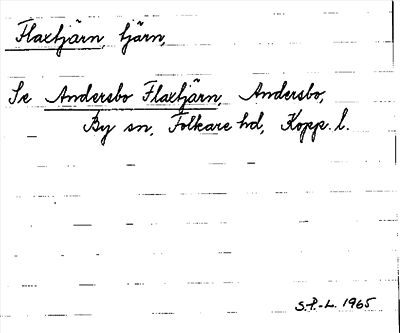 Flaxtjärn, tjärn,
Se Andersbo Flaxtjärn, Andersbo,
By sn, Folkare hd, Kopp. l.
S.P.-L. 1965